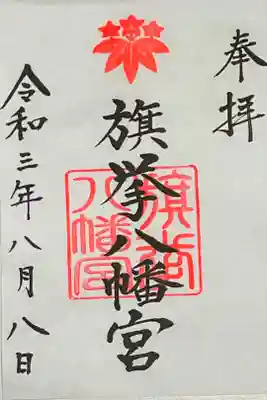 奉拝
旗挙八幡宮
旗挙八幡宮
令和三年八月八日